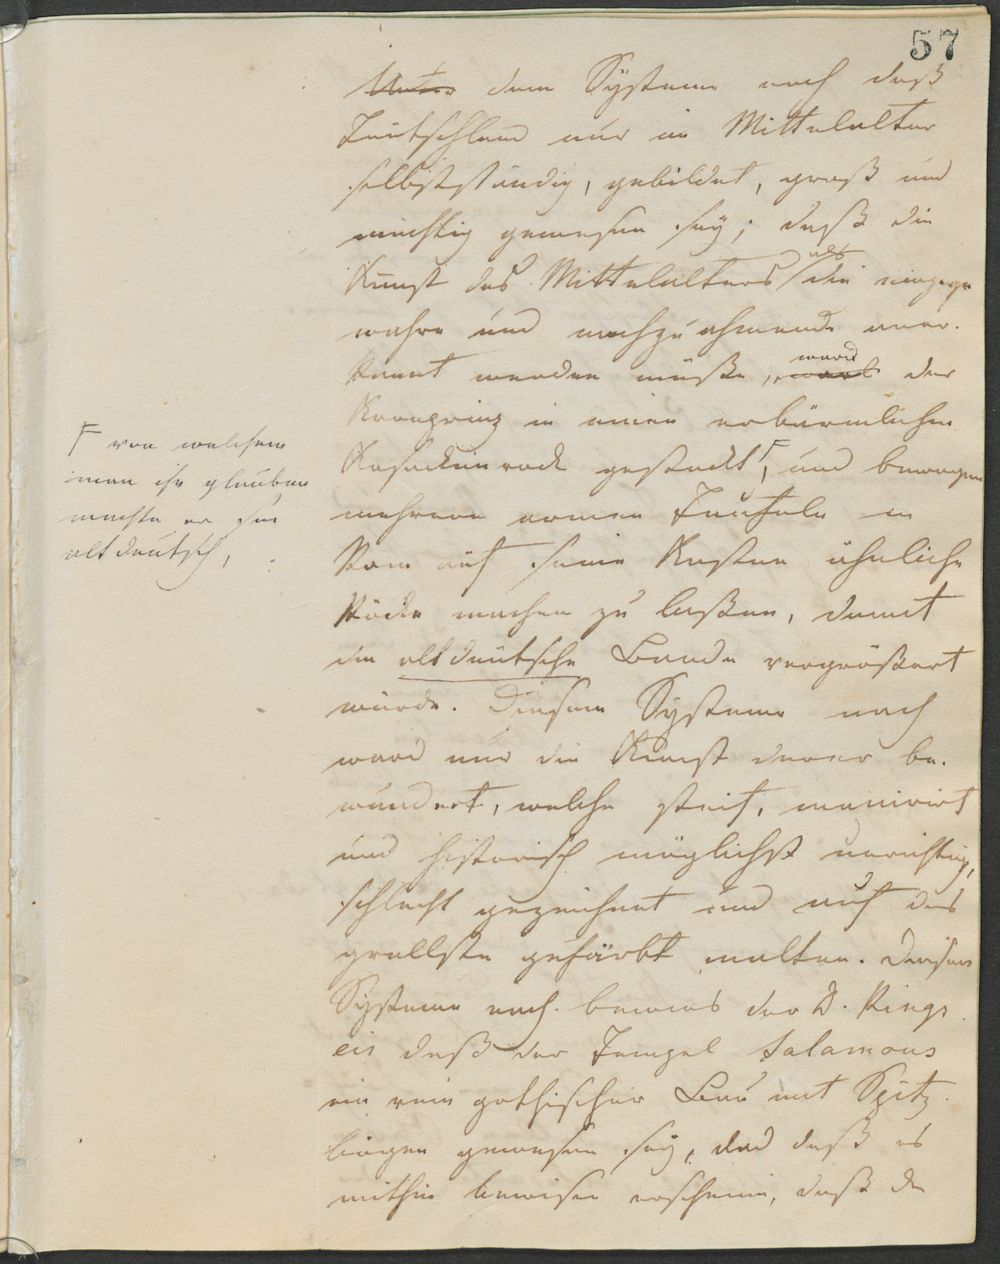 57
Unter dem Systeme nach daß
Teutschland nur im Mittelalter
selbstständig, gebildet, groß und
mächtig gewesen sey; daß die
Kunst des Mittelalters als die einzige
wahre und nachzuahmende aner-
kannt werden müße, ward der
Kronprinz in einen erbärmlichen
Kosackenrock gesteckt F, und bewogen
mehrere armen Teufeln in
Rom auf seine Kosten ähnliche
Röcke machen zu laßen, damit
die altdeutsche Bande vergrößert
würde. Diesem Systeme nach
ward nur die Kunst derer be-
wundert, welche steif, manirirt
und historisch möglichst unrichtig,
schlecht gezeichnet und auf das
grellste gefärbt malten. Diesem
Systeme nach bewies der D. Rings-
eis daß der Tempel Salamons
ein rein gothischer Bau mit Spitz-
bögen gewesen sey, und daß es
mithin bewiesen erscheine, daß die
F von welchem
man ihn glauben
machte er sei
altdeutsch,